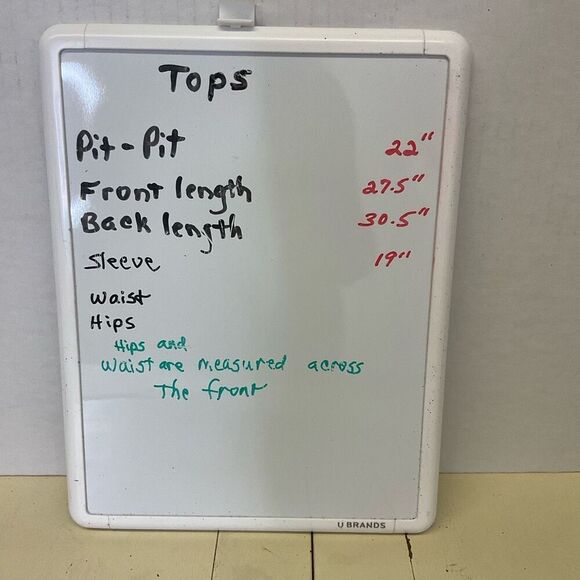 Tops
Pit-Pit 22"
Front length 27.5"
Back length 30.5"
Sleeve 19"
Waist
Hips
Hips and
Waist are measured across
The front
U BRANDS